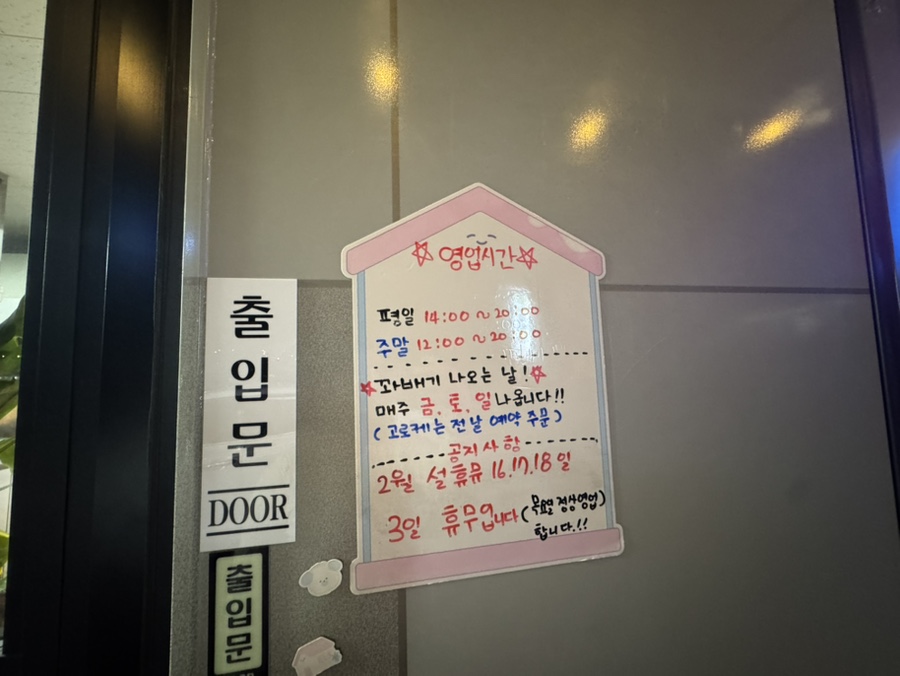 출입문
DOOR
출입문
영업시간
평일 14:00 ~ 20:00
주말 12:00 ~ 20:00
꽈배기 나오는 날!
매주 금, 토, 일 나옵니다!!
(고로케는 전날 예약 주문)
공지사항
2월 설 휴뮤 16, 17, 18일
3일 휴무입니다 (목요일 정상영업)
합니다.!!